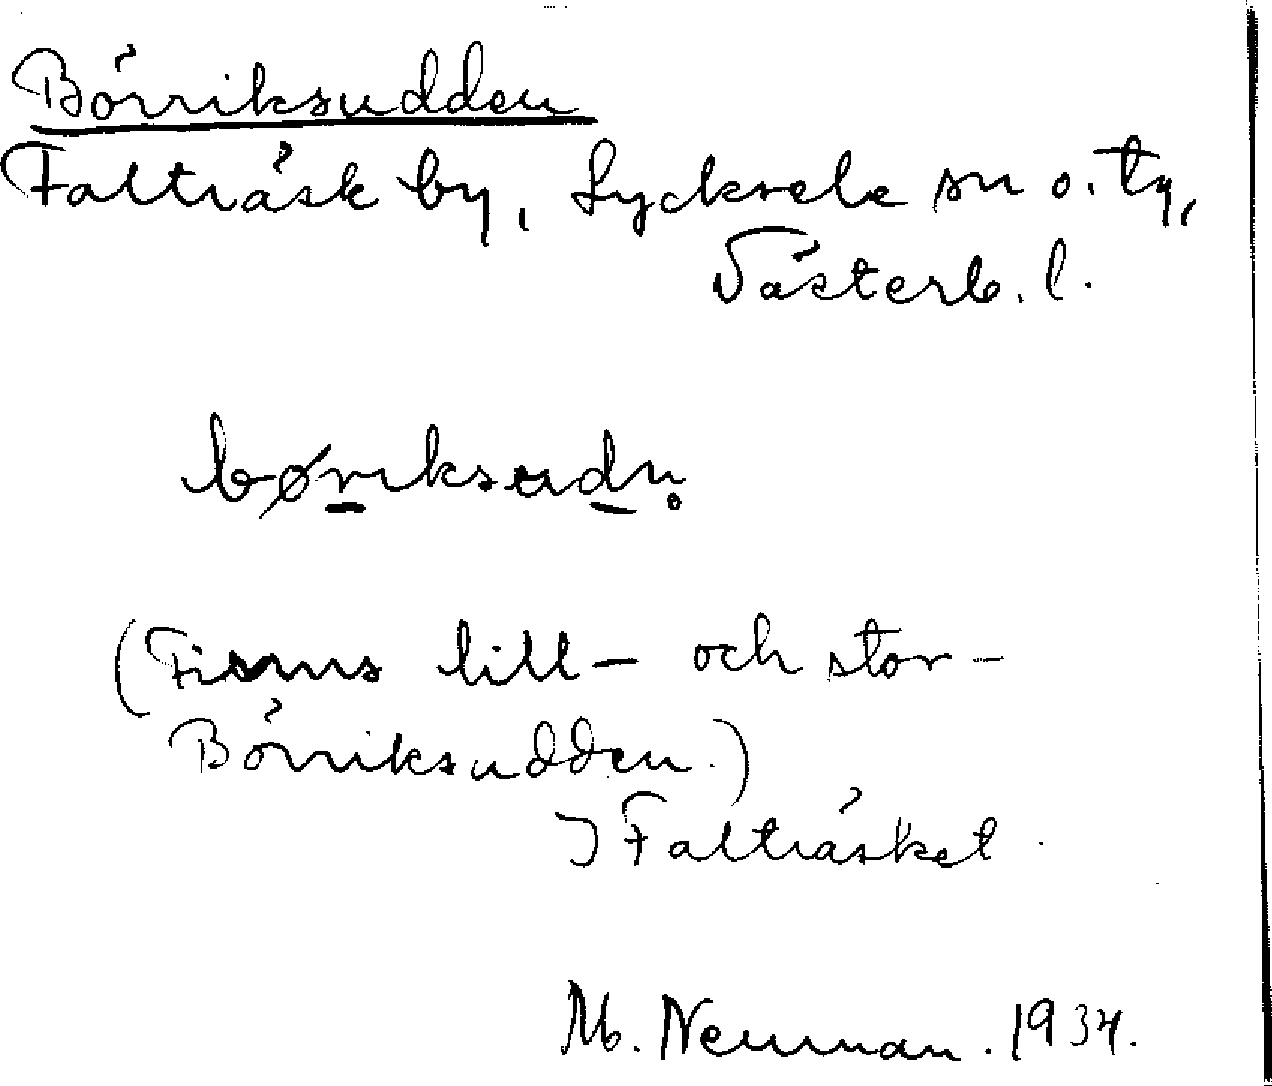 Börriksudden
Falträsk by, Lycksele sn o. ty,
Västerb. l.
børiksudn̥
(Finns lill- och stor-
Börriksudden.)
I Falträsket.
M. Neuman. 1934.